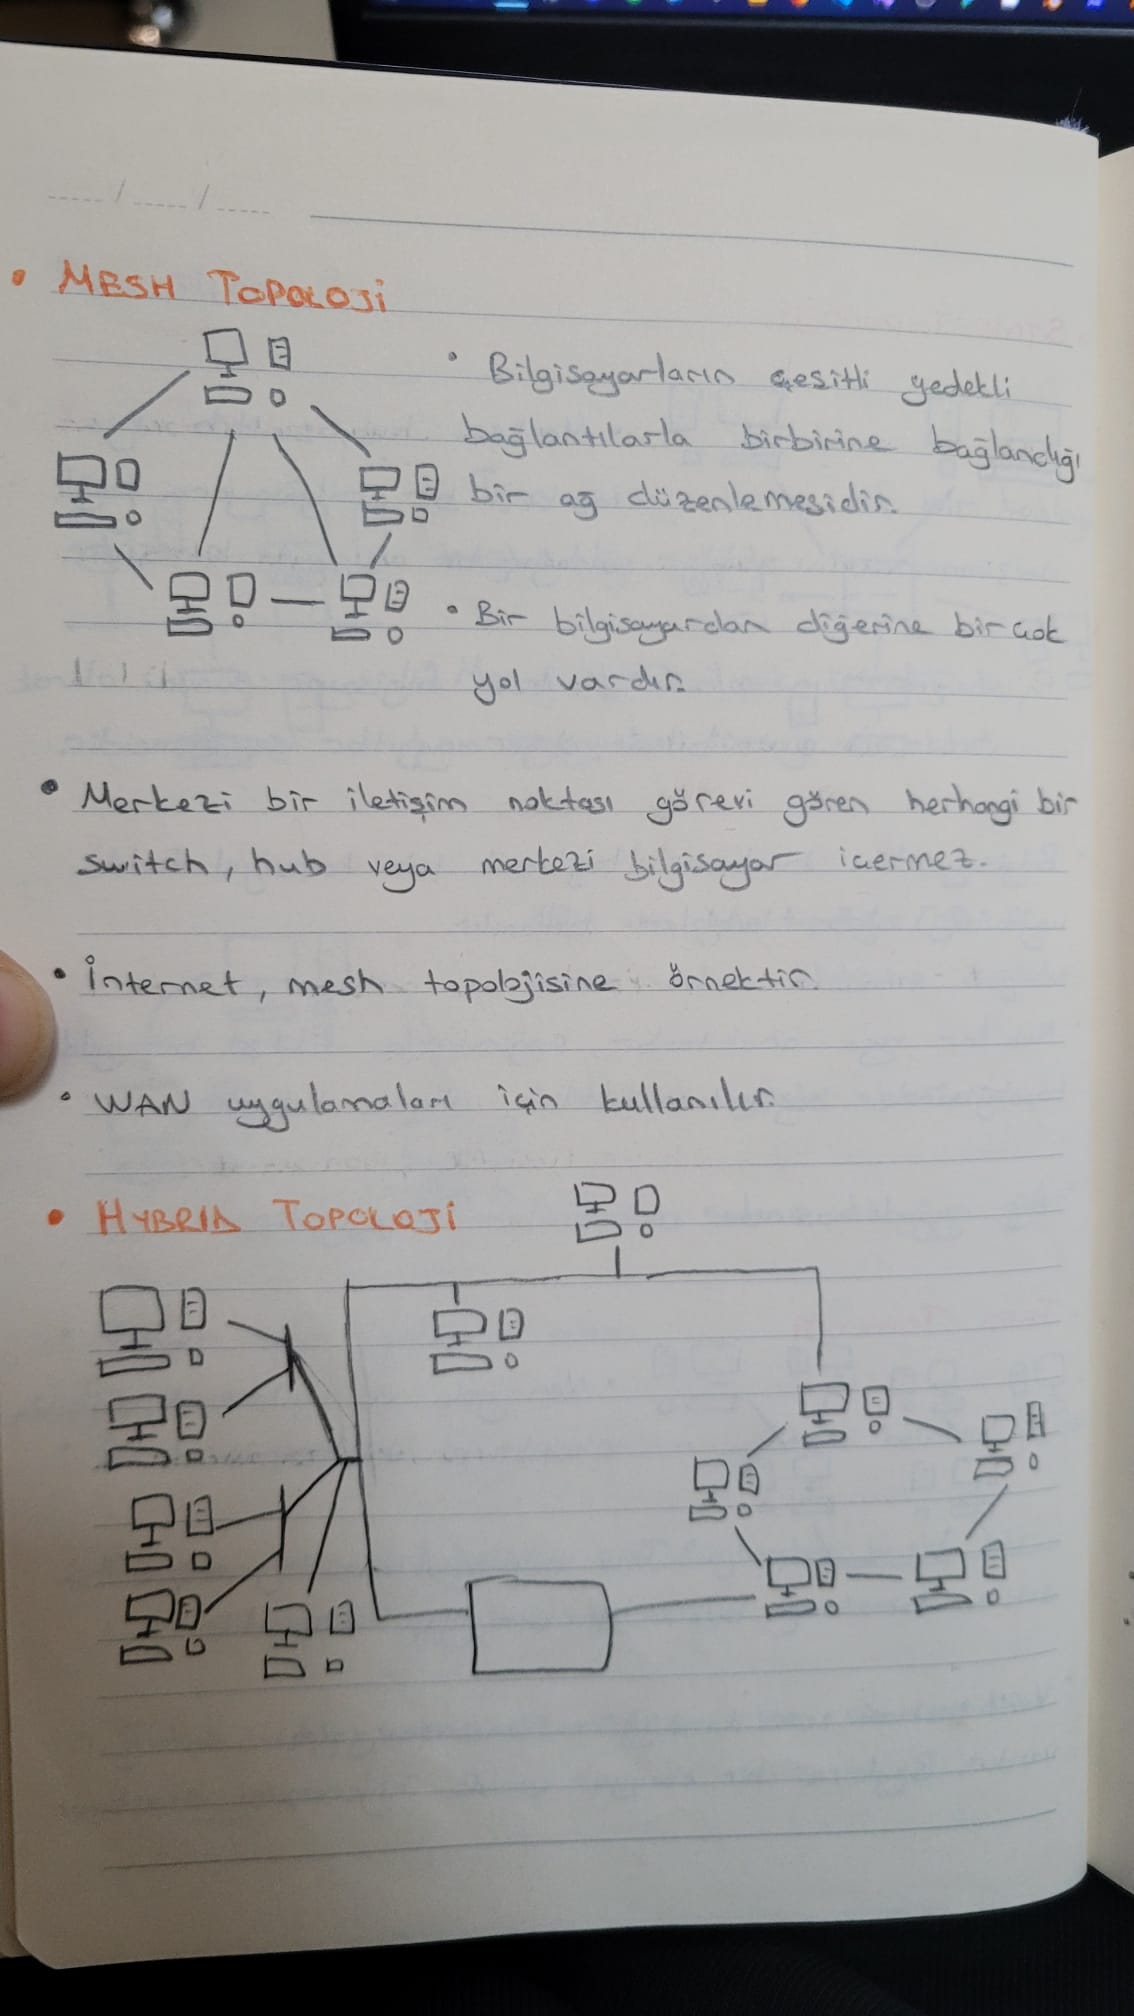 • MESH TOPOLOJİ
• Bilgisayarların çesitli yedekli
bağlantılarla birbirine bağlandığı
bir ağ düzenlemesidir.
• Bir bilgisayardan diğerine bir çok
yol vardır.
• Merkezi bir iletişim noktası görevi gören herhangi bir
switch, hub veya merkezi bilgisayar icermez.
• İnternet, mesh topolojisine örnektir.
• WAN uygulamaları için kullanılır.
• HYBRID TOPOLOJİ